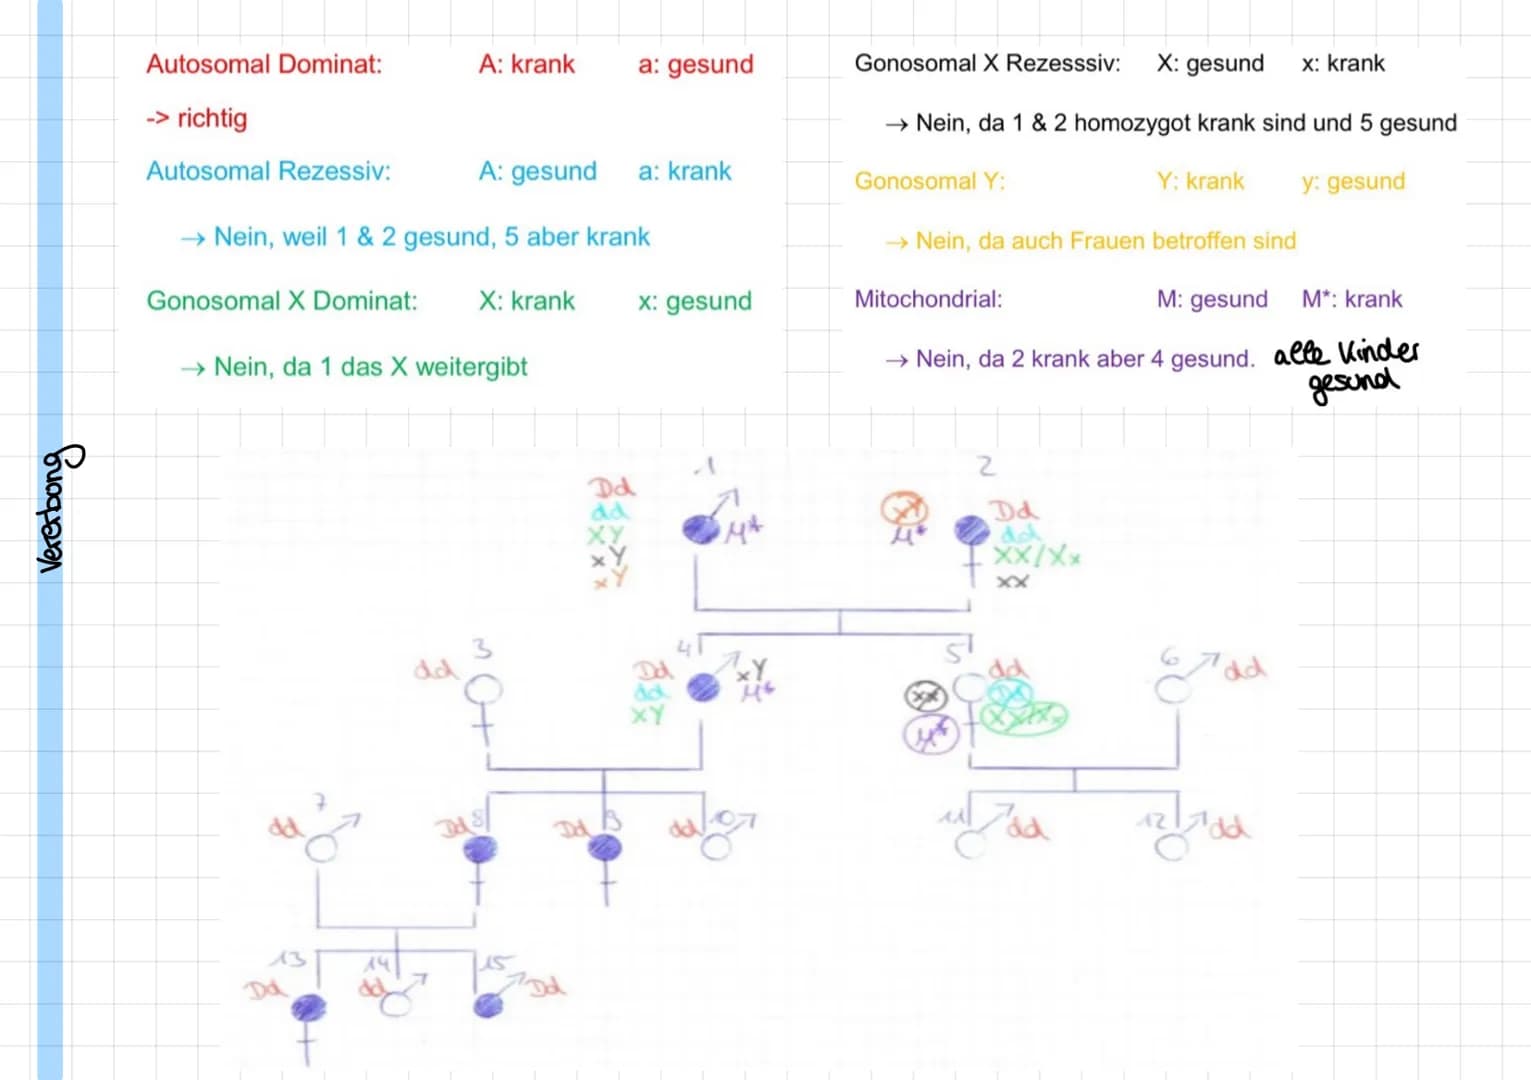 Autosomal Dominat: A: krank a: gesund
-> richtig
Autosomal Rezessiv: A: gesund a: krank
→ Nein, weil 1 & 2 gesund, 5 aber krank
Gonosomal X Dominat: X: krank x: gesund
→ Nein, da 1 das X weitergibt
Gonosomal X Rezesssiv: X: gesund x: krank
→ Nein, da 1 & 2 homozygot krank sind und 5 gesund
Gonosomal Y: Y: krank y: gesund
→ Nein, da auch Frauen betroffen sind
Mitochondrial: M: gesund M*: krank
→ Nein, da 2 krank aber 4 gesund. alle Kinder
gesund
Vererbung
1 2
Dd
dd
XY
xY
xY
M*
M*
Dd
dd
XX/Xx
xx
3
dd
4
Dd
dd
XY
xY
M*
5
dd
xx
M*
6 dd
7
dd
8
Dd
9
Dd
10
dd
11
dd
12
dd
13
Dd
14
dd
15
Dd